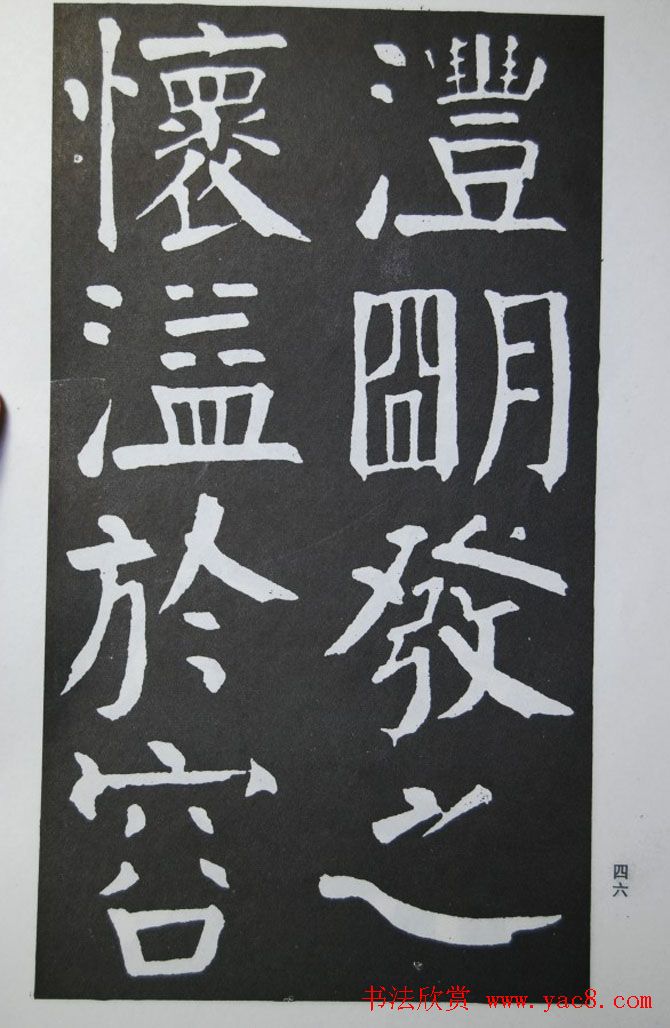 澧朙發之
懷溢於容
四六
书法欣赏 www.yac8.com